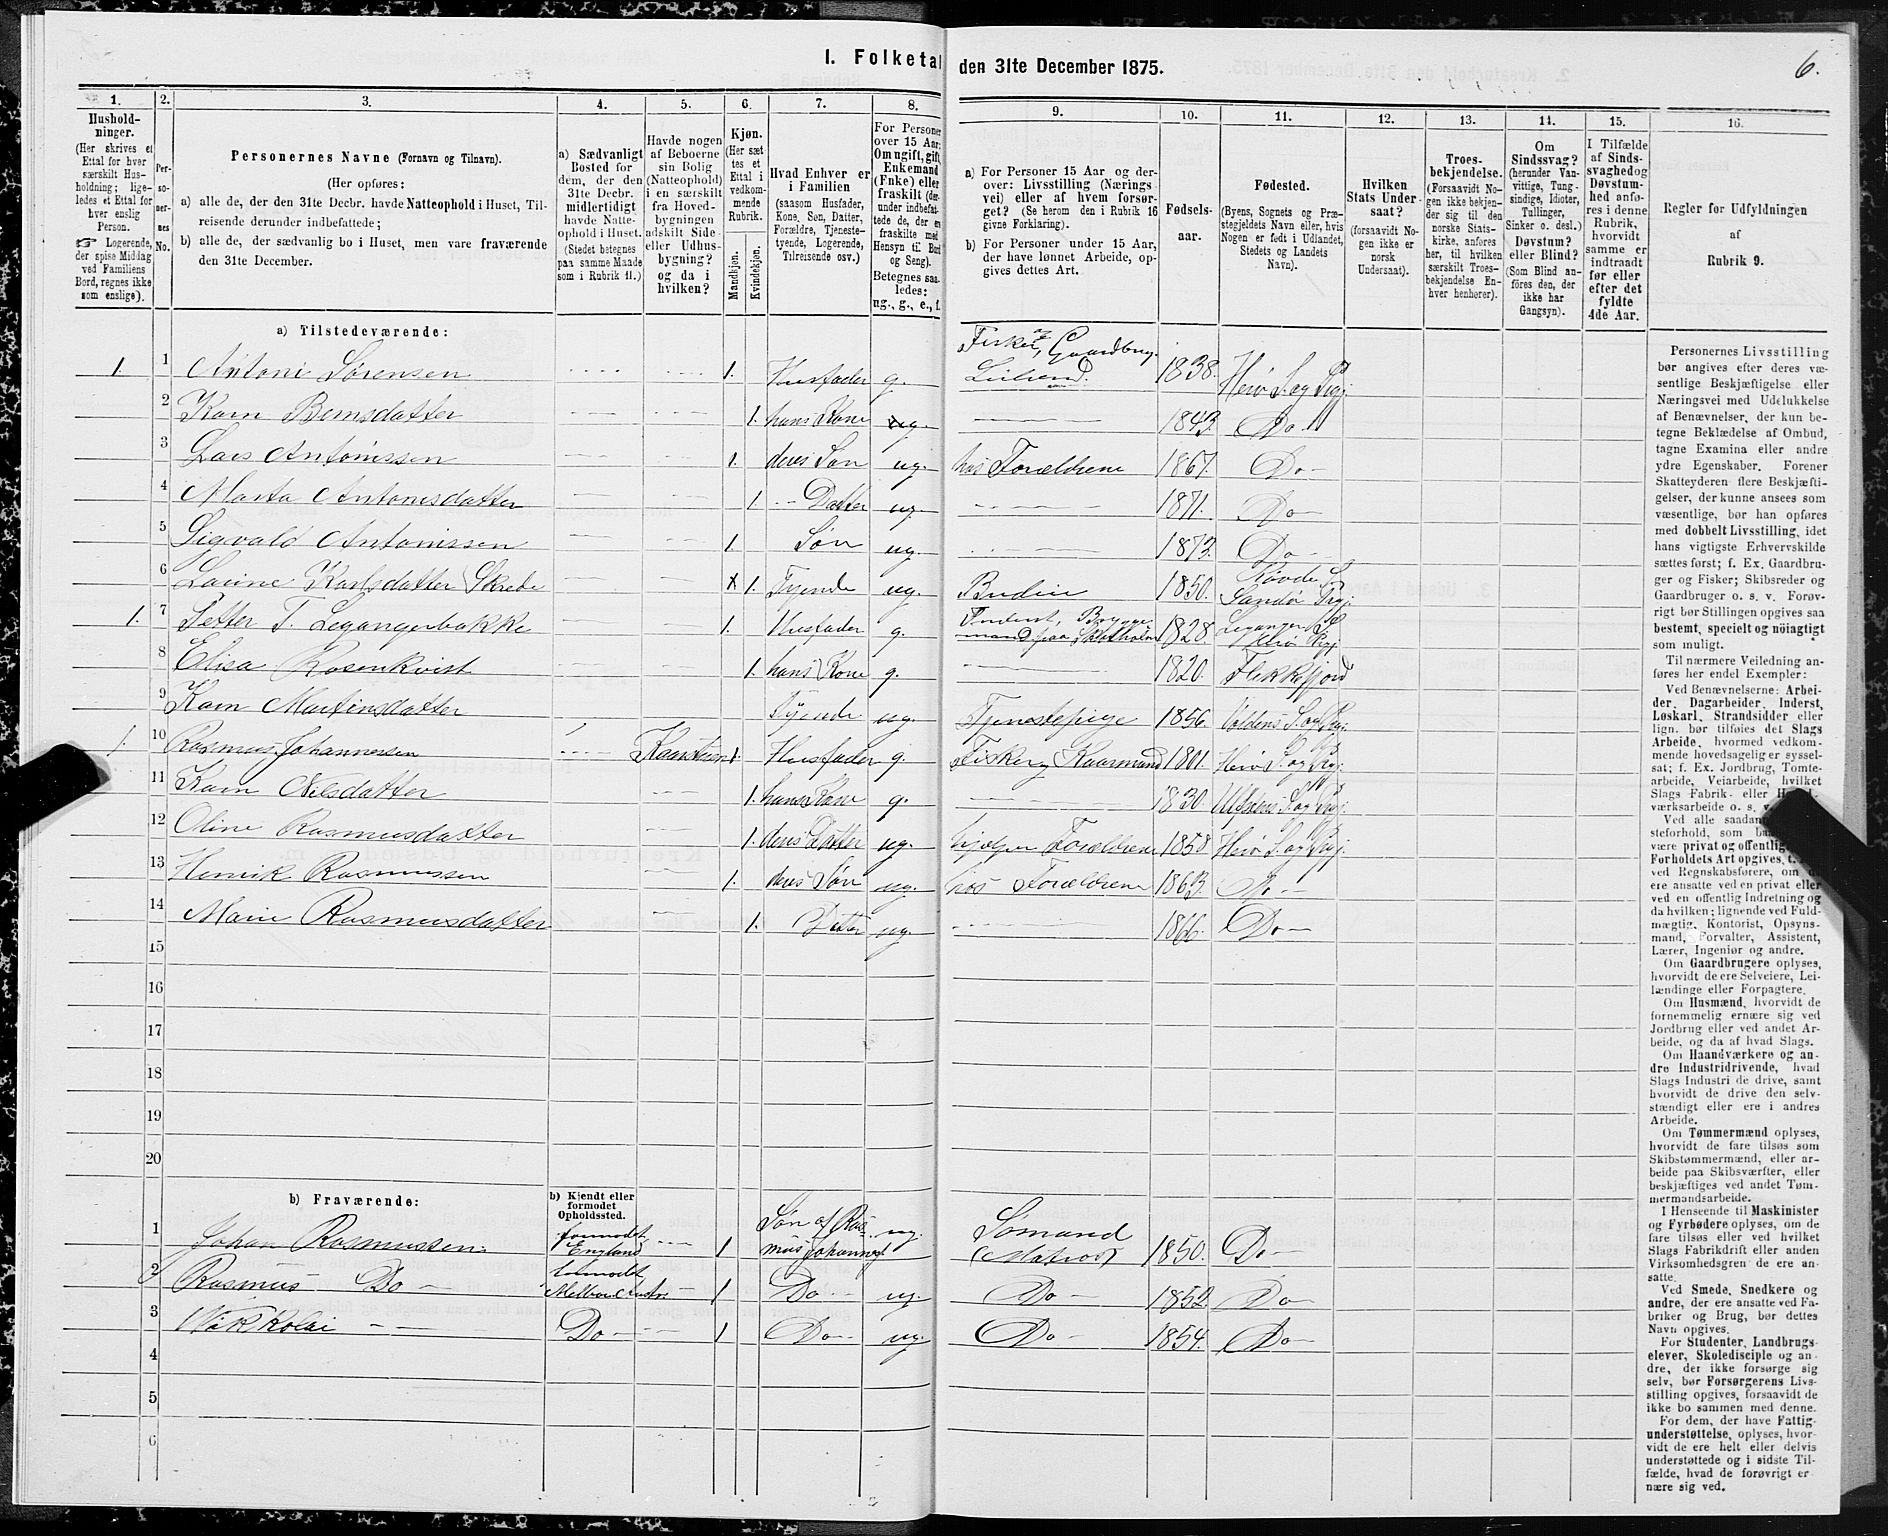 I. Folketal den 31te December 1875.
6.
1.
Hushold-
ninger.
(Her skrives et
Ettal for hver
særskilt Hus-
holdning; lige-
ledes et Ettal for
hver enslig
Person.
☞ Logerende,
der spise Middag
ved Familiens
Bord, regnes ikke
som enslige).
2.
Per-
so-
ner-
nes
No.
3.
Personernes Navne (Fornavn og Tilnavn).
(Her opføres:
a) alle de, der den 31te Decbr. havde Natteophold i Huset, Til-
reisende derunder indbefattede;
b) alle de, der sædvanlig bo i Huset, men vare fraværende
den 31te December.
4.
a) Sædvanligt
Bosted for
dem, der den
31te Decbr.
midlertidigt
havde Natte-
ophold i Huset.
(Stedet betegnes
paa samme Maade
som i Rubrik 11.)
5.
Havde nogen
af Beboerne
sin Bolig
(Natteophold)
i en særskilt
fra Hoved-
bygningen
adskilt Side-
eller Udhus-
bygning?
og da i
hvilken?
6.
Kjøn.
(Her sæt-
tes et
Ettal i
vedkom-
mende
Rubrik.
Mandkjøn.
Kvindekjøn.
7.
Hvad Enhver er
i Familien
(saasom Husfader,
Kone, Søn, Datter,
Forældre, Tjeneste-
tyende, Logerende,
Tilreisende osv.)
8.
For Personer
over 15 Aar:
Om ugift, gift,
Enkemand
(Enke) eller
fraskilt (der-
under indbefat-
tede de, der er
fraskilte med
Hensyn til Bord
og Seng).
Betegnes saa-
ledes:
ug., g., e., f.
9.
a) For Personer 15 Aar og der-
over: Livsstilling (Nærings-
vei) eller af hvem forsør-
get? (Se herom den i Rubrik 16
givne Forklaring).
b) For Personer under 15 Aar,
der have lønnet Arbeide, op-
gives dettes Art.
10.
Fødsels-
aar.
11.
Fødested.
(Byens, Sognets og Præ-
stegjeldets Navn eller, hvis
Nogen er født i Udlandet,
Stedets og Landets
Navn).
12.
Hvilken
Stats Under-
saat?
(forsaavidt No-
gen ikke er
norsk
Undersaat).
13.
Troes-
bekjendelse.
(Forsaavidt No-
gen ikke bekjen-
der sig til den
norske Stats-
kirke, anføres
her, til hvilken
særskilt Troes-
bekjendelse En-
hver henhører).
14.
Om
Sindssvag?
(herunder Van-
vittige, Tung-
sindige, Idioter,
Tullinger,
Sinker o. desl.)
Døvstum?
eller Blind?
(Som Blind an-
føres den, der
ikke har
Gangsyn).
15.
I Tilfælde
af Sinds-
svaghed og
Døvstum-
hed anfø-
res i denne
Rubrik,
hvorvidt
samme er
indtraadt
før eller
efter det
fyldte
4de Aar.
16.
Regler for Udfyldningen
af
Rubrik 9.
a) Tilstedeværende:
1. 1 Antoni Sørensen 1. Husfader g. Fisker og Gaardbrug. Leilend. 1838. Herø S. og Pgj.
2 Karn Berntsdatter 1. hans Kone 1843. Do
3 Lars Antonissen 1. deres Søn ug. hos Forældrene 1867. Do
4 Marta Antonisdatter 1. Datter ug. 1871. Do
5 Sigvald Antonissen 1. Søn ug. 1873. Do
6 Laurine Karlsdatter Skrede x 1. Tyende ug. Budeie 1850. Røvde S. Sandø Pgj.
1. 7 Petter T. Legangerbakke 1. Husfader g. Inderst, Bryggemand paa 1828 Leganger S. Herø Pgj.
8 Elisa Rosenkvist 1. hans Kone g. 1820. Flekkefjord
9 Karn Martinsdatter Tyende ug. Tjenestepige 1856. Voldens S. og Pgj.
1. 10 Rasmus Johannessen 1. Husfader g. Fisker og Kaarmand 1801 Herø S. og Pgj.
11 Karn Nilsdatter 1. hans Kone g. 1830. Ulfstens S. og Pgj.
12 Oline Rasmusdatter 1. deres Datter ug. hjelper Forældrene 1858 Herø S. og Pgj.
13 Henrik Rasmussen 1. deres Søn ug. hos Forældrene 1863. Do
14 Marie Rasmusdatter 1. Datter ug. 1866. Do
15
16
17
18
19
20
b) Fraværende:
b) Kjendt eller
formodet
Opholdssted.
1 Johan Rasmussen formodt. England 1 Søn af Rasmus Johannes. ug. Sømand (Matros) 1850. Do
2 Rasmus Do formodt 1 Do ug. Do 1852. Do
3 Nikkolai Do 1 Do ug. Do 1854. Do
4
5
6
Personernes Livsstilling
bør angives efter deres væ-
sentlige Beskjæftigelse eller
Næringsvei med Udelukkelse
af Benævnelser, der kun be-
tegne Beklædelse af Ombud,
tagne Examina eller andre
ydre Egenskaber. Forener
Skatteyderen flere Beskjæfti-
gelser, der kunne ansees som
væsentlige, bør han opføres
med dobbelt Livsstilling, idet
hans vigtigste Erhvervskilde
sættes først; f. Ex. Gaardbru-
ger og Fisker; Skibsreder og
Gaardbruger o. s. v. Forøv-
rigt bør Stillingen opgives saa
bestemt, specielt og nöiagtigt
som muligt.
Til nærmere Veiledning an-
føres her endel Exempler:
Ved Benævnelserne: Arbei-
der, Dagarbeider, Inderst,
Løskarl, Strandsidder eller
lign. bør tilføies det Slags
Arbeide, hvormed vedkom-
mende hovedsagelig er syssel-
sat; f. Ex. Jordbrug, Tomte-
arbeide, Veiarbeide, hvilket
Slags Fabrik- eller
værksarbeide o. s. v.
Ved alle saadan
steforhold, som
være privat og offentlig
Forholdets Art opgives,
ved Regnskabsførere, om
ere ansatte ved en privat eller
ved en offentlig Indretning og
da hvilken; lignende ved Fuld-
mægtig, Kontorist, Opsyns-
mand, Forvalter, Assistent,
Lærer, Ingeniør og andre.
Om Gaardbrugere oplyses,
hvorvidt de ere Selveiere, Lei-
lændinge eller Forpagtere.
Om Husmænd, hvorvidt de
fornemmelig ernære sig ved
Jordbrug eller ved andet Ar-
beide, og da af hvad Slags.
Om Haandværkere og an-
dre Industridrivende, hvad
Slags Industri de drive, samt
hvorvidt de drive den selv-
stændigt eller ere i andres
Arbeide.
Om Tømmermænd oplyses,
hvorvidt de fare tilsøs som
Skibstømmermænd, eller ar-
beide paa Skibsværfter, eller
beskjæftiges ved andet Tøm-
mermandsarbeide.
I Henseende til Maskinister
og Fyrbødere oplyses, om de
fare tilsøs eller ved hvilket
Slags Fabrikdrift eller anden
Virksomhedsgren de ere an-
satte.
Ved Smede, Snedkere og
andre, der ere ansatte ved Fa-
briker og Brug, bør dettes
Navn opgives.
For Studenter, Landbrugs-
elever, Skoledisciple og an-
dre, der ikke forsørge sig
selv, bør Forsørgerens Livs-
stilling opgives, forsaavidt de
ikke bo sammen med denne.
For dem, der have Fattig-
understøttelse, oplyses, hvor-
vidt de ere helt eller delvis
understøttede og i sidste Til-
fælde, hvad de forøvrigt er-
nære sig ved.